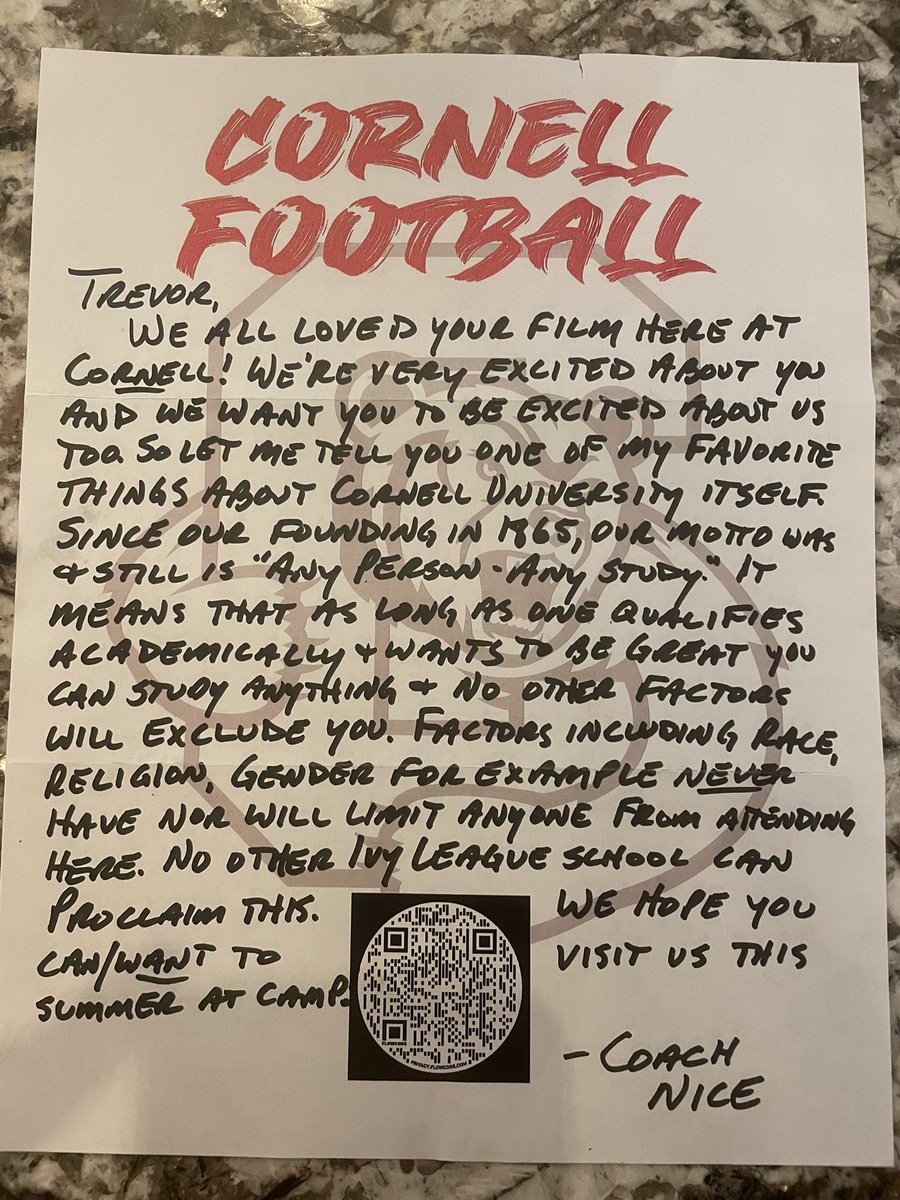 CORNELL
FOOTBALL
TREVOR,
WE ALL LOVED YOUR FILM HERE AT
CORNELL! WE'RE VERY EXCITED ABOUT YOU
AND WE WANT YOU TO BE EXCITED ABOUT US
TOO. SO LET ME TELL YOU ONE OF MY FAVORITE
THINGS ABOUT CORNELL UNIVERSITY ITSELF.
SINCE OUR FOUNDING IN 1865, OUR MOTTO WAS
& STILL IS "ANY PERSON - ANY STUDY." IT
MEANS THAT AS LONG AS ONE QUALIFIES
ACADEMICALLY & WANTS TO BE GREAT YOU
CAN STUDY ANYTHING & NO OTHER FACTORS
WILL EXCLUDE YOU. FACTORS INCLUDING RACE,
RELIGION, GENDER FOR EXAMPLE NEVER
HAVE NOR WILL LIMIT ANYONE FROM ATTENDING
HERE. NO OTHER IVY LEAGUE SCHOOL CAN
PROCLAIM THIS. WE HOPE YOU
CAN/WANT TO VISIT US THIS
SUMMER AT CAMP.
FLOWCODE
PRIVACY.FLOWCODE.COM
- COACH
NICE